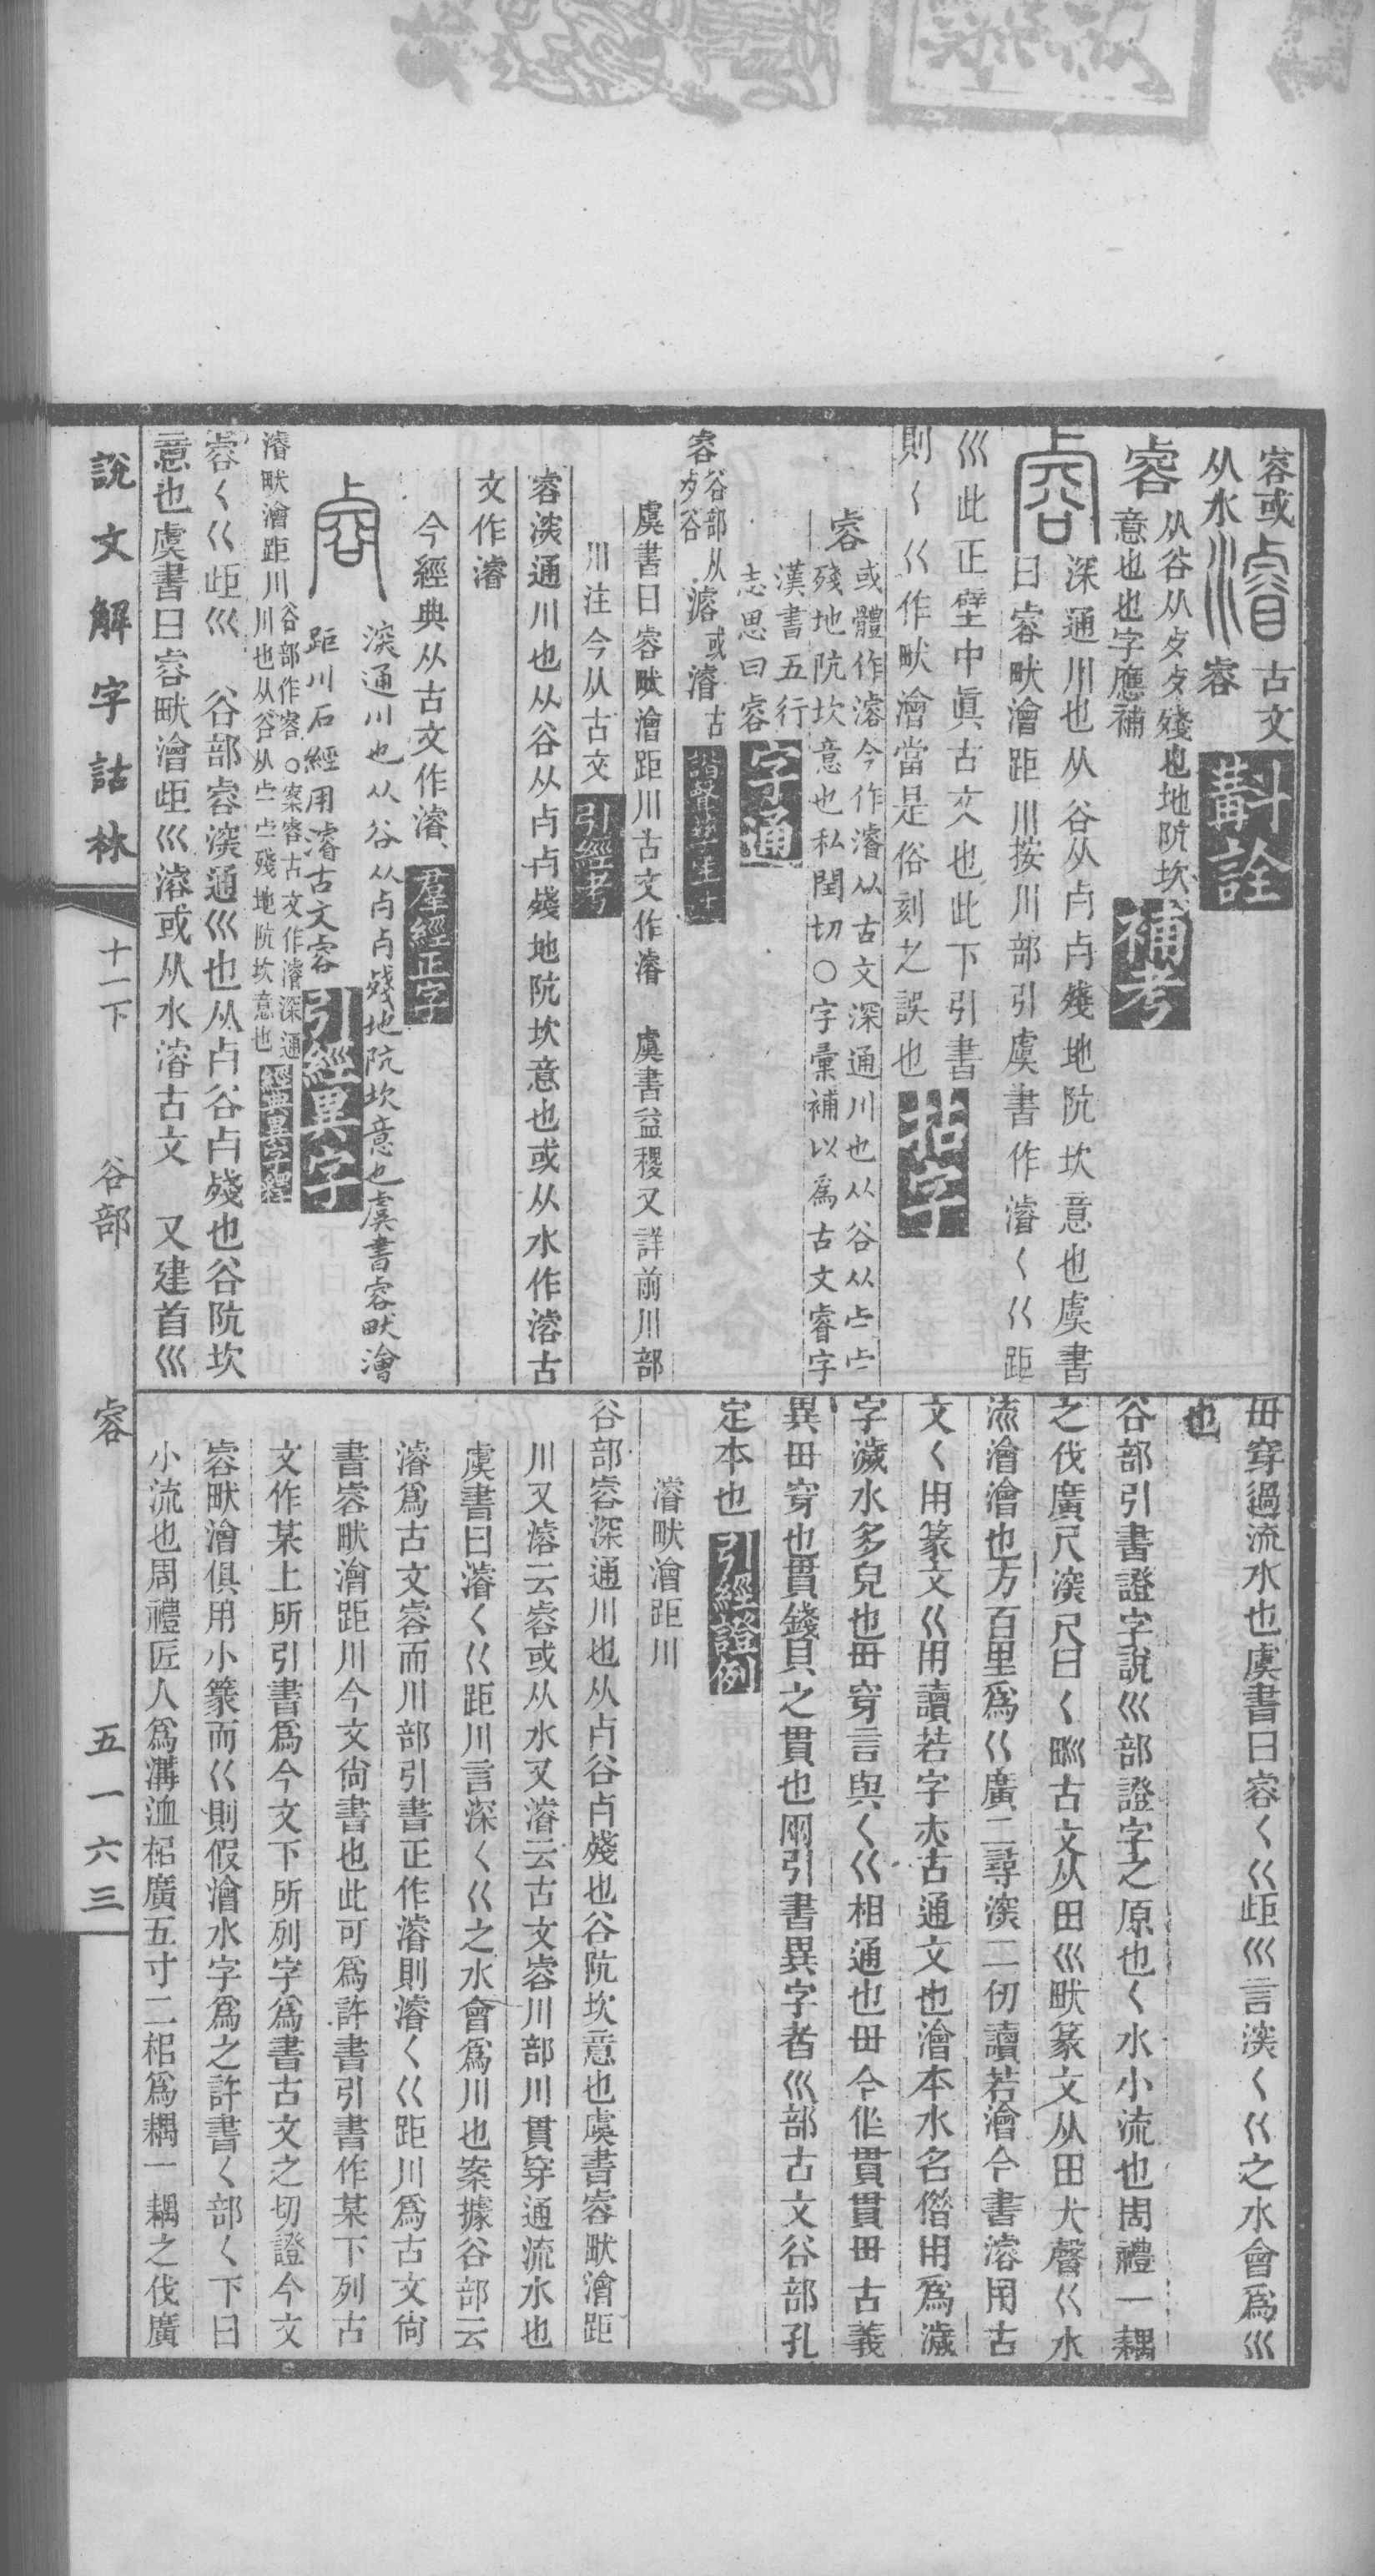 容或
从水
古文
㕡
斠詮
㕡
从谷从歺歺殘也地阬坎
意也也字應補
補考
深通川也从谷从卢卢殘地阬坎意也虞書
曰㕡畎澮距川按川部引虞書作濬く巜距
巛此正壁中眞古文也此下引書
則く巜作畎澮當是俗刻之誤也
拈字
㕡
或體作濬今作濬从古文深通川也从谷从
殘地阬坎意也私閏切○字彙補以爲古文睿字
漢書五行
志思曰㕡
字通
㕡
谷部从
歺谷
或
濬
古
虞書曰㕡畎澮距川古文作濬　虞書益稷又詳前川部
川注今从古文
引經考
㕡深通川也从谷从卢卢殘地阬坎意也或从水作濬古
文作濬
今經典从古文作濬
羣經正字
深通川也从谷从卢卢殘地阬坎意也虞書㕡畎澮
距川石經用濬古文㕡
引經異字
濬畎澮距川
谷部作㕡○案㕡古文作濬深通
川也从谷从殘地阬坎意也
㕡く巜歫巛　谷部㕡深通巛也从卢谷卢殘也谷阬坎
意也虞書曰㕡畎澮歫巛濬或从水濬古文　又建首巛
說文解字詁林
十一下
谷部
㕡
五一六三
毌穿過流水也虞書曰㕡く巜歫巛言深く巜之水會爲巛
也
谷部引書證字說巛部證字之原也く水小流也周禮一耦
之伐廣尺深尺曰く甽古文从田巛畎篆文从田犬聲巜水
流澮澮也方百里爲巜廣二尋深二仞讀若澮今書濬用古
文く用篆文巜用讀若字亦古通文也澮本水名僭用爲濊
字濊水多皃也毌穿言與く巜相通也毌今作貫貫毌古義
異毌穿也貫錢貝之貫也网引書異字者巛部古文谷部孔
定本也
引經證例
濬畎澮距川
谷部㕡深通川也从卢谷卢殘也谷阬坎意也虞書㕡畎澮距
川又濬云㕡或从水又濬云古文㕡川部川貫穿通流水也
虞書曰濬く巜距川言深く巜之水會爲川也案據谷部云
濬爲古文㕡而川部引書正作濬則濬く巜距川爲古文尙
書㕡畎澮距川今文尙書也此可爲許書引書作某下列古
文作某上所引書爲今文下所列字爲書古文之切證今文
㕡畎澮俱用小篆而巜則假澮水字爲之許書く部く下曰
小流也周禮匠人爲溝洫枱廣五寸二枱爲耦一耦之伐廣